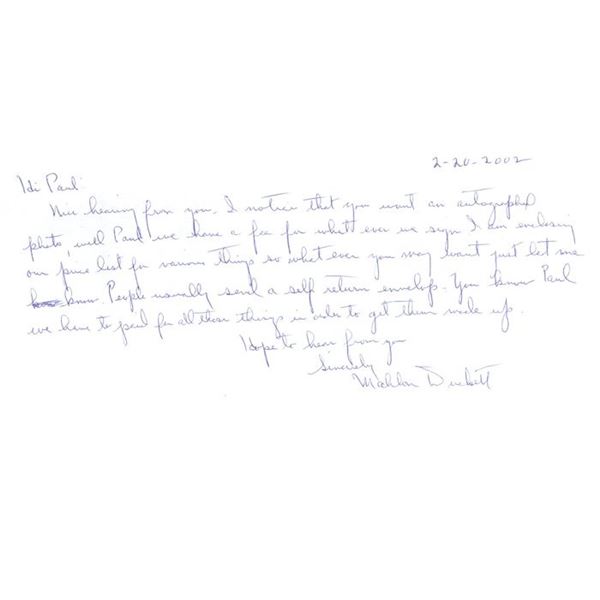 2-20-2002
Hi Paul:
Nice hearing from you. I notice that you want an autographed
photo, well Paul we have a fee for what ever we sign I am enclosing
our price list for various things so what ever you may want just let me
know. People usually send a self return envelop. You know Paul
we have to paid for all those things in order to get them made up.
Hope to hear from you
Sincerely
Mahlon Duckett